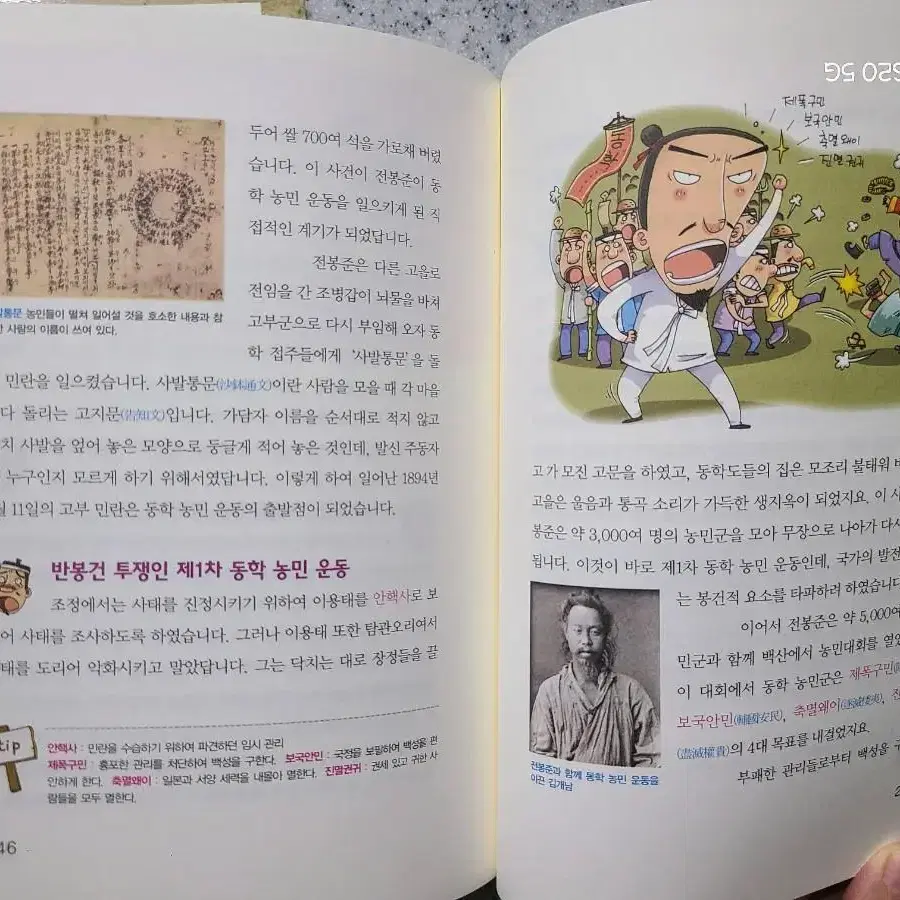 두어 쌀 700여 석을 가로채 버렸
습니다. 이 사건이 전봉준이 동
학 농민 운동을 일으키게 된 직
접적인 계기가 되었답니다.
전봉준은 다른 고을로
전임을 간 조병갑이 뇌물을 바쳐
고부군으로 다시 부임해 오자 동
학 접주들에게 '사발통문'을 돌
민란을 일으켰습니다. 사발통문(沙鉢通文)이란 사람을 모을 때 각 마을
다 돌리는 고지문(告知文)입니다. 가담자 이름을 순서대로 적지 않고
치 사발을 엎어 놓은 모양으로 둥글게 적어 놓은 것인데, 발신 주동자
누구인지 모르게 하기 위해서였답니다. 이렇게 하여 일어난 1894년
월 11일의 고부 민란은 동학 농민 운동의 출발점이 되었습니다.
발통문 농민들이 떨쳐 일어설 것을 호소한 내용과 참
한 사람의 이름이 쓰여 있다.
반봉건 투쟁인 제1차 동학 농민 운동
조정에서는 사태를 진정시키기 위하여 이용태를 안핵사로 보
어 사태를 조사하도록 하였습니다. 그러나 이용태 또한 탐관오리여서
태를 도리어 악화시키고 말았답니다. 그는 닥치는 대로 장정들을 끌
tip
안핵사 : 민란을 수습하기 위하여 파견하던 임시 관리
제폭구민 : 횡포한 관리를 처단하여 백성을 구한다. 보국안민 : 국정을 보필하여 백성을 편
안하게 한다. 축멸왜이 : 일본과 서양 세력을 내몰아 멸한다. 진멸권귀 : 권세 있고 귀한 사
람들을 모두 멸한다.
46
S20 5G
제폭구민
보국안민
축멸왜이
진멸권귀
동학
고가 모진 고문을 하였고, 동학도들의 집은 모조리 불태워
고을은 울음과 통곡 소리가 가득한 생지옥이 되었지요. 이 사
봉준은 약 3,000여 명의 농민군을 모아 무장으로 나아가 다시
됩니다. 이것이 바로 제1차 동학 농민 운동인데, 국가의 발전
는 봉건적 요소를 타파하려 하였습니다
이어서 전봉준은 약 5,000여
민군과 함께 백산에서 농민대회를 열었
이 대회에서 동학 농민군은 제폭구민
보국안민(輔國安民), 축멸왜이(逐滅倭夷),
(盡滅權貴)의 4대 목표를 내걸었지요.
부패한 관리들로부터 백성을 구
전봉준과 함께 동학 농민 운동을
이끈 김개남
2